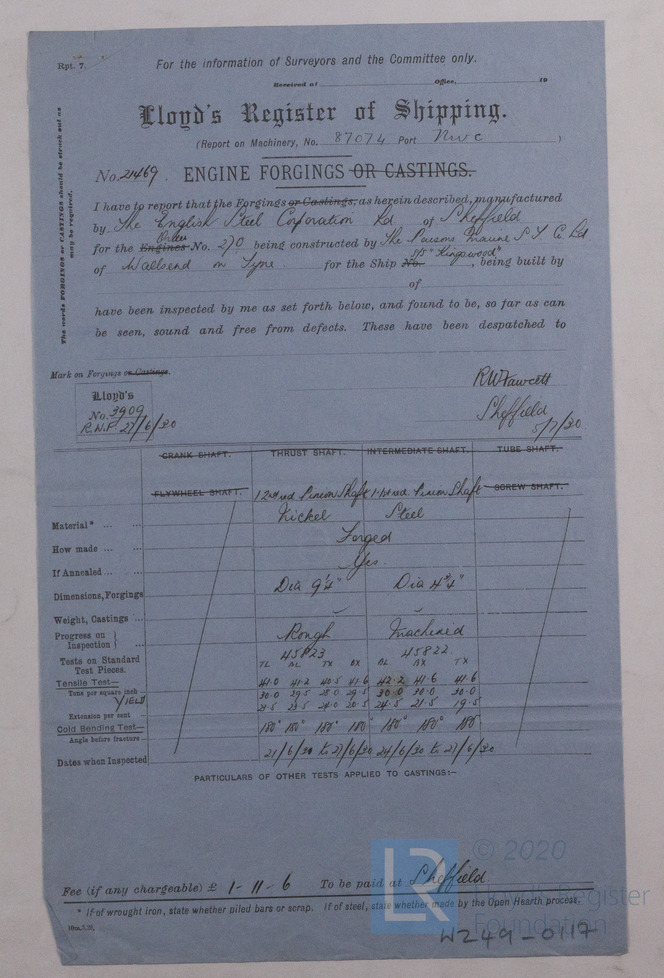 Rpt. 7.
For the information of Surveyors and the Committee only.
Received at Office, 19
Lloyd's Register of Shipping.
(Report on Machinery, No. 87074 Port Nwc )
No. 21469. ENGINE FORGINGS OR CASTINGS.
The words FORGINGS or CASTINGS should be struck out as may be required.
I have to report that the Forgings or Castings, as herein described, manufactured
by The English Steel Corporation Ld of Sheffield
for the Engines Order No. 270 being constructed by The Parsons Marine S T Co Ld
of Wallsend on Tyne for the Ship No. S/S "Kingswood", being built by
of
have been inspected by me as set forth below, and found to be, so far as can
be seen, sound and free from defects. These have been despatched to
Mark on Forgings or Castings.
Lloyd's
No. 3909
R.W.F. 27/6/30
RWFawcett
Sheffield
5/7/30
CRANK SHAFT. THRUST SHAFT. INTERMEDIATE SHAFT. TUBE SHAFT.
FLYWHEEL SHAFT. 1 2nd red. Pinion Shaft 1-1st red. Pinion Shaft SCREW SHAFT.
Material* ... ... Nickel Steel
How made ... ... Forged
If Annealed ... ... Yes.
Dimensions, Forgings Dia 9¼" Dia 4¾"
Weight, Castings ...
Progress on Inspection } ... Rough Machined
45823 45822
Tests on Standard Test Pieces. TL BL TX BX BL BX TX
Tensile Test— 41.0 41.2 40.5 41.6 42.2 41.6 41.6
Tons per square inch
YIELD 30.0 29.5 28.0 29.5 30.0 30.0 30.0
Extension per cent ... 24.5 23.5 24.0 20.5 24.5 21.5 19.5
Cold Bending Test— 180° 180° 180° 180° 180° 180° 180°
Angle before fracture ...
Dates when Inspected 21/6/30 to 27/6/30 24/6/30 to 27/6/30
PARTICULARS OF OTHER TESTS APPLIED TO CASTINGS:—
Fee (if any chargeable) £ 1-11-6 To be paid at Sheffield.
* If of wrought iron, state whether piled bars or scrap. If of steel, state whether made by the Open Hearth process.
© 2020
Lloyd's Register
Foundation
LR
W249-0117